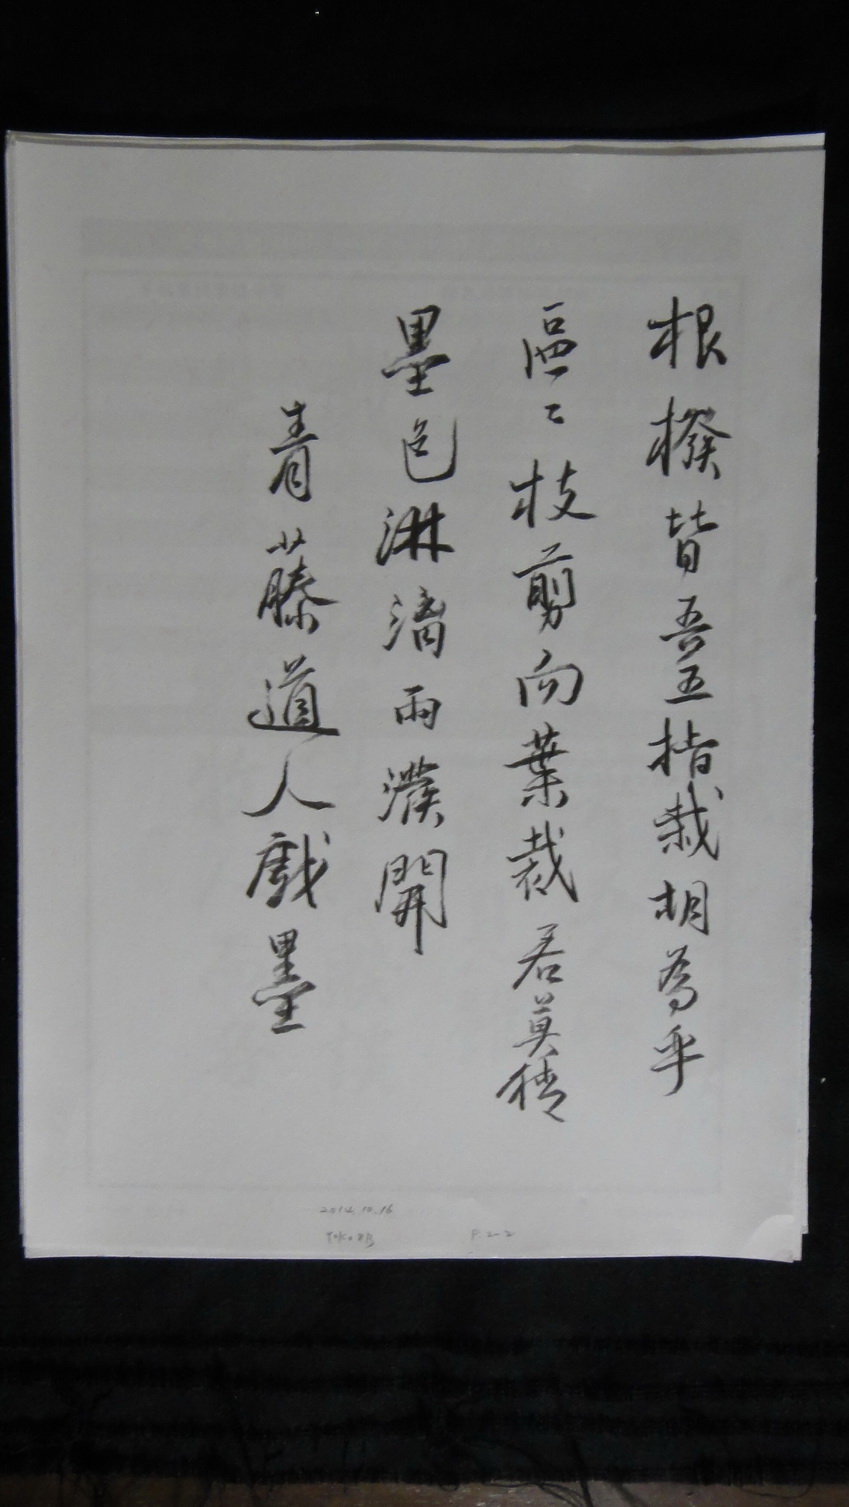 根撥皆吾五指栽胡為乎
區〻枝剪向葉裁君莫猜
墨色淋漓雨濮開
青藤道人戲墨
2014.10.16
P.2-2